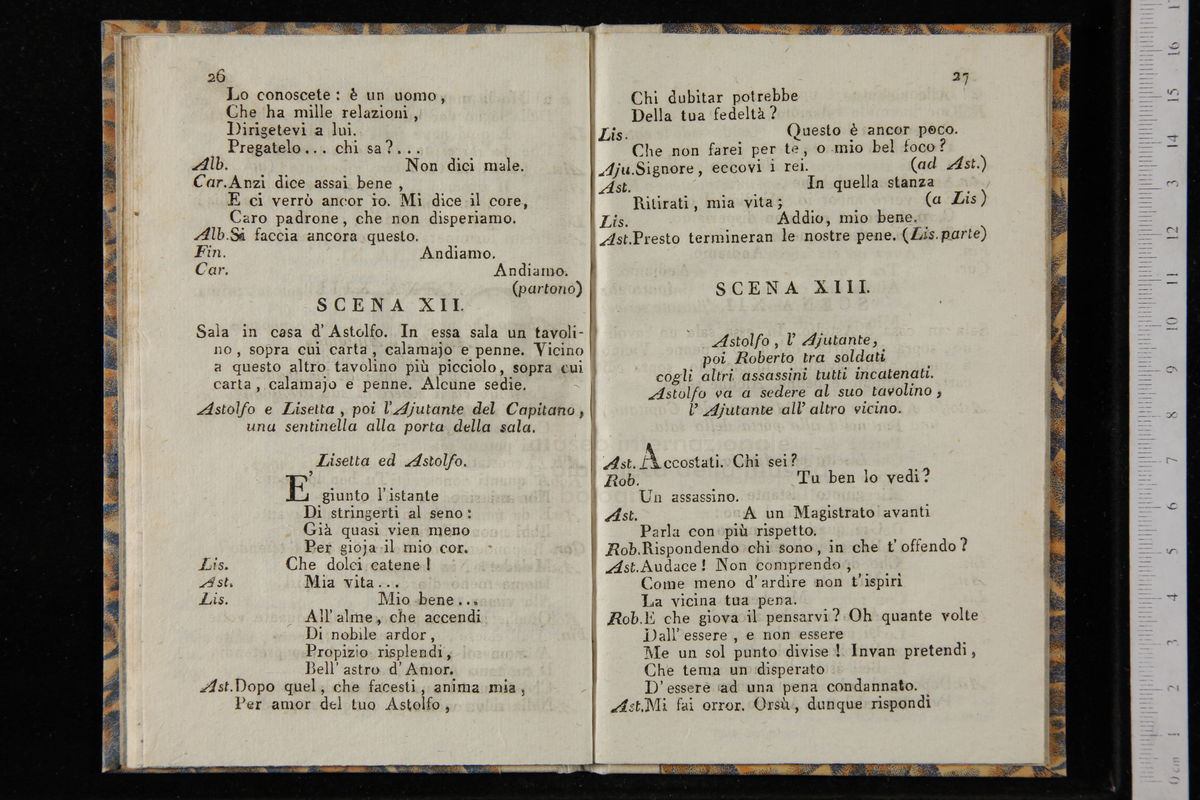 26
Lo conoscete : è un uomo ,
Che ha mille relazioni ,
Dirigetevi a lui.
Pregatelo... chi sa ?...
Alb. Non dici male.
Car.Anzi dice assai bene ,
E ci verrò ancor io. Mi dice il core,
Caro padrone , che non disperiamo.
Alb.Si faccia ancora questo.
Fin. Andiamo.
Car. Andiamo.
(partono)
SCENA XII.
Sala in casa d' Astolfo. In essa sala un tavoli-
no , sopra cui carta , calamajo e penne. Vicino
a questo altro tavolino più picciolo , sopra cui
carta , calamajo e penne. Alcune sedie.
Astolfo e Lisetta , poi l'Ajutante del Capitano ,
una sentinella alla porta della sala.
Lisetta ed Astolfo.
E' giunto l'istante
Di stringerti al seno :
Già quasi vien meno
Per gioja il mio cor.
Lis. Che dolci catene !
Ast. Mia vita...
Lis. Mio bene...
All' alme , che accendi
Di nobile ardor ,
Propizio risplendi ,
Bell' astro d' Amor.
Ast.Dopo quel , che facesti , anima mia ,
Per amor del tuo Astolfo ,
27
Chi dubitar potrebbe
Della tua fedeltà ?
Lis. Questo è ancor poco.
Che non farei per te , o mio bel foco ?
Aju.Signore , eccovi i rei. (ad Ast.)
Ast. In quella stanza
Ritirati , mia vita ; (a Lis)
Lis. Addio, mio bene.
Ast.Presto termineran le nostre pene. (Lis.parte)
SCENA XIII.
Astolfo , l' Ajutante,
poi Roberto tra soldati
cogli altri assassini tutti incatenati.
Astolfo va a sedere al suo tavolino ,
l' Ajutante all' altro vicino.
Ast. Accostati. Chi sei ?
Rob. Tu ben lo vedi ?
Un assassino.
Ast. A un Magistrato avanti
Parla con più rispetto.
Rob.Rispondendo chi sono , in che t' offendo ?
Ast.Audace ! Non comprendo ,
Come meno d' ardire non t' ispiri
La vicina tua pena.
Rob.E che giova il pensarvi ? Oh quante volte
Dall' essere , e non essere
Me un sol punto divise ! Invan pretendi ,
Che tema un disperato
D' essere ad una pena condannato.
Ast.Mi fai orror. Orsù , dunque rispondi